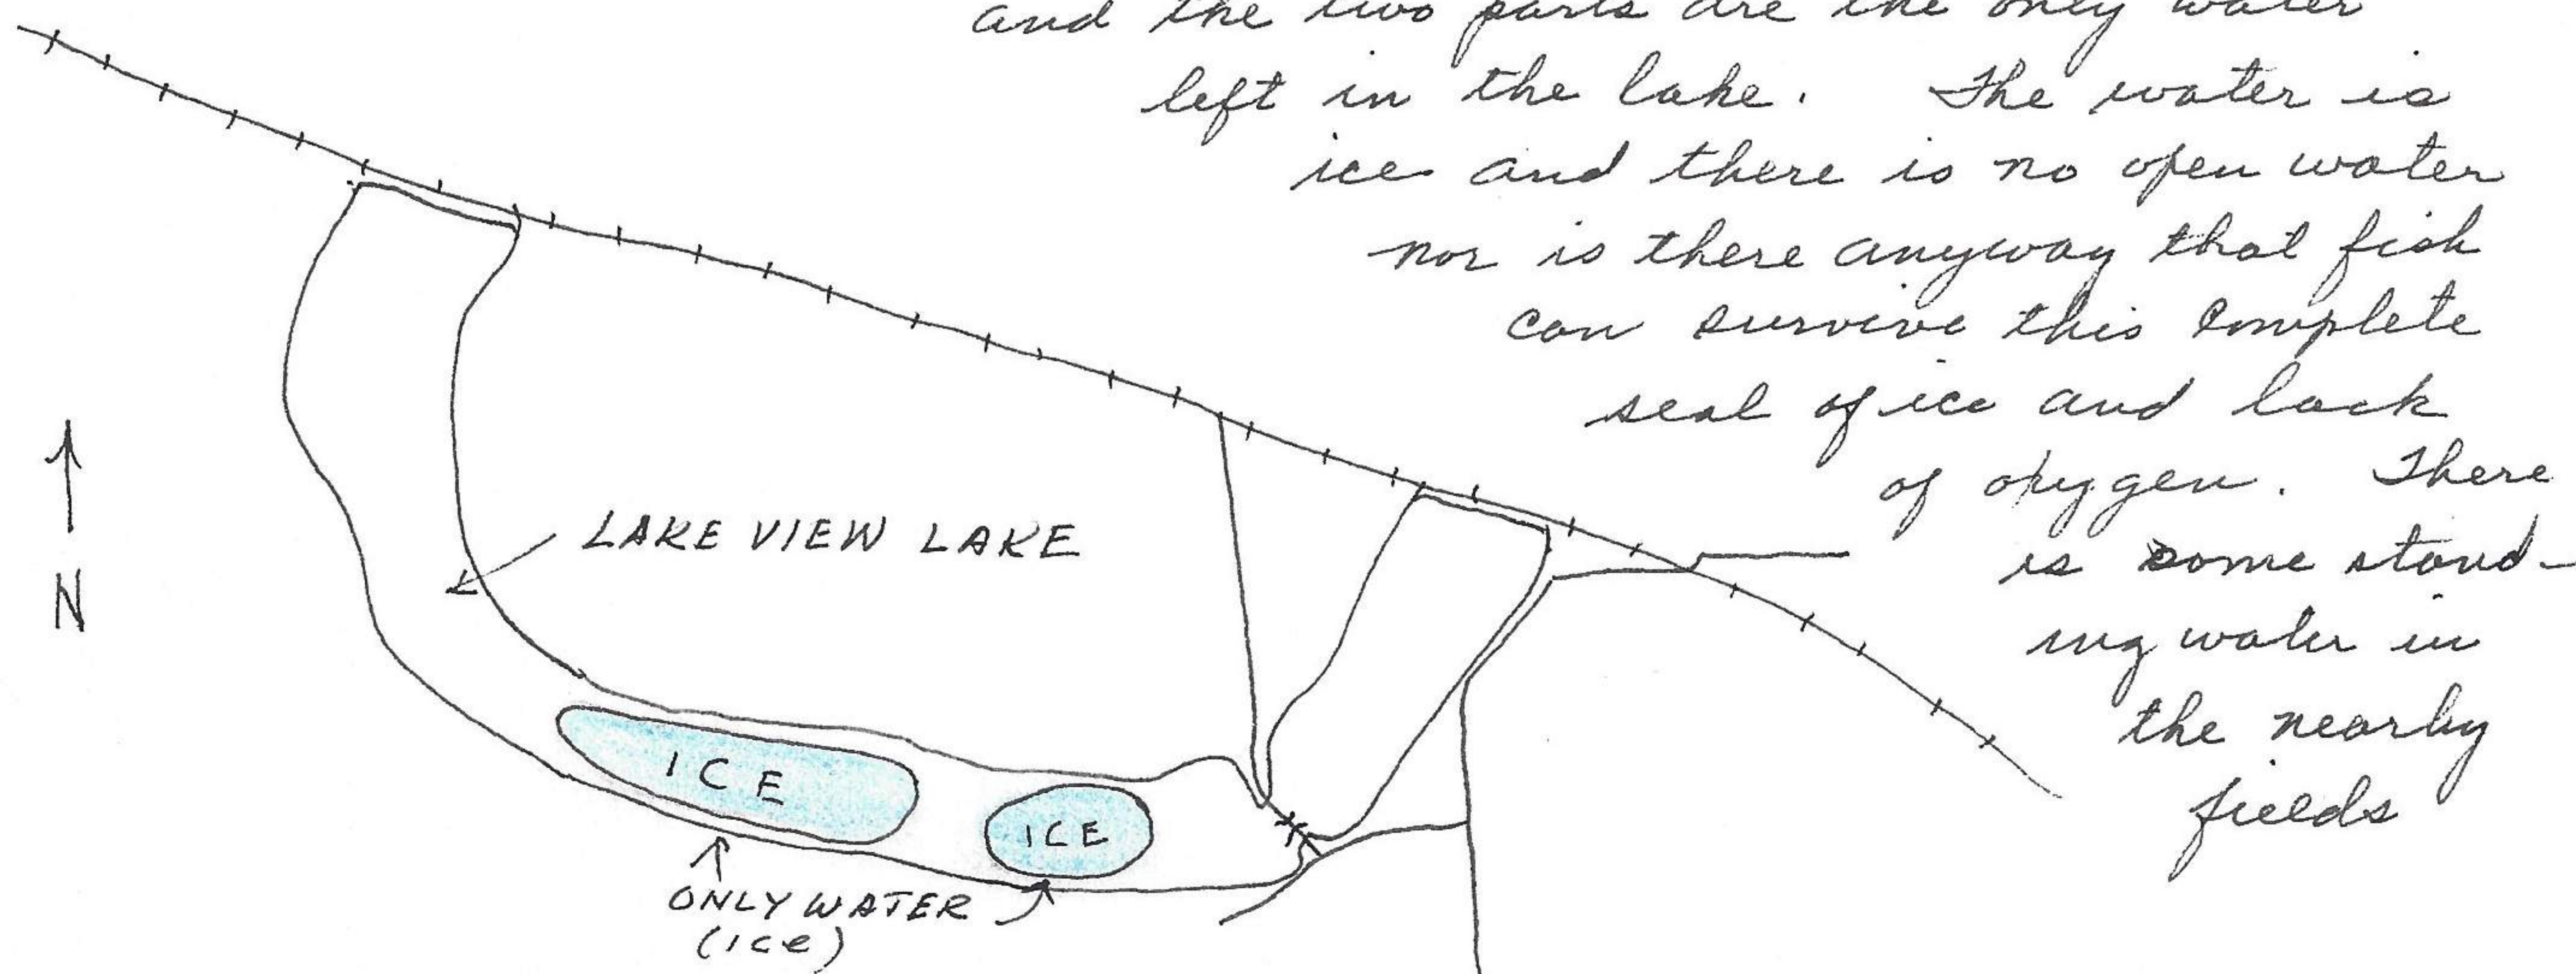 and the two parts are the only water
left in the lake. The water is
ice and there is no open water
nor is there anyway that fish
can survive this complete
seal of ice and lack
of oxygen. There
is some stand-
ing water in
the nearby
fields
LAKE VIEW LAKE
N
ICE
ICE
ONLY WATER
(ice)